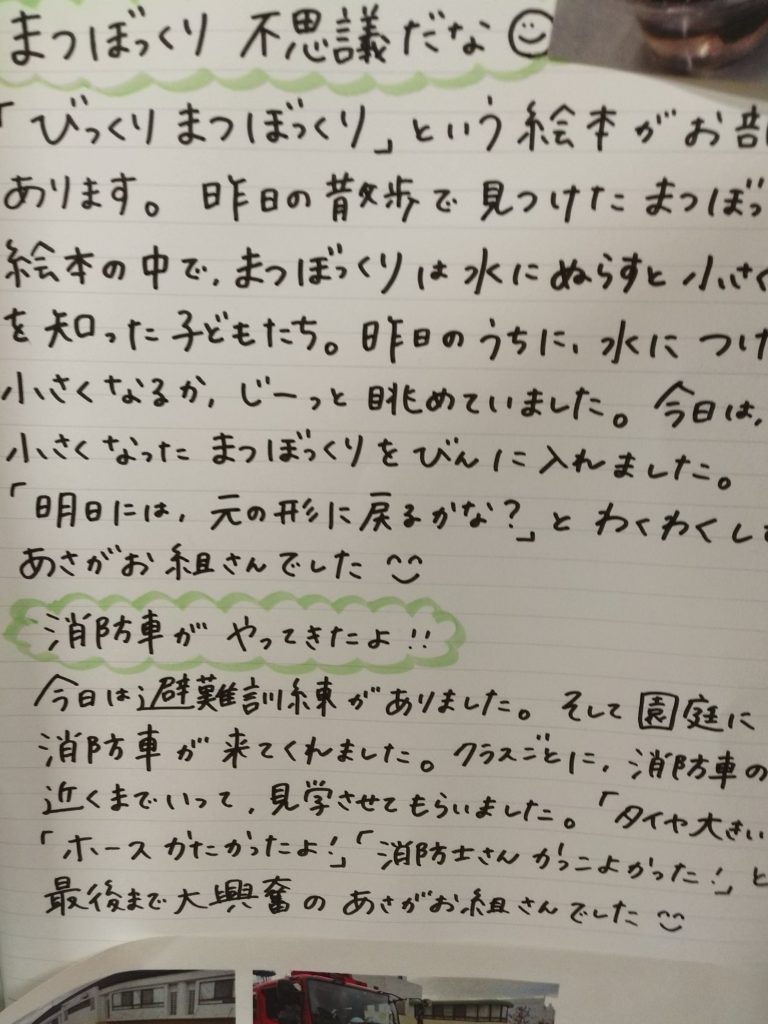 まつぼっくり 不思議だな
「びっくりまつぼっくり」という絵本がお部
あります。昨日の散歩で見つけたまつぼっ
絵本の中で、まつぼっくりは水にぬらすと小さく
を知った子どもたち。昨日のうちに、水につけ
小さくなるか、じーっと眺めていました。今日は、
小さくなったまつぼっくりをびんに入れました。
「明日には、元の形に戻るかな?」とわくわくして
あさがお組さんでした
消防車がやってきたよ!!
今日は避難訓練がありました。そして園庭に
消防車が来てくれました。クラスごとに、消防車の
近くまでいって、見学させてもらいました。「タイヤ大きい
「ホースかたかったよ!」「消防士さんかっこよかった!」と
最後まで大興奮のあさがお組さんでした